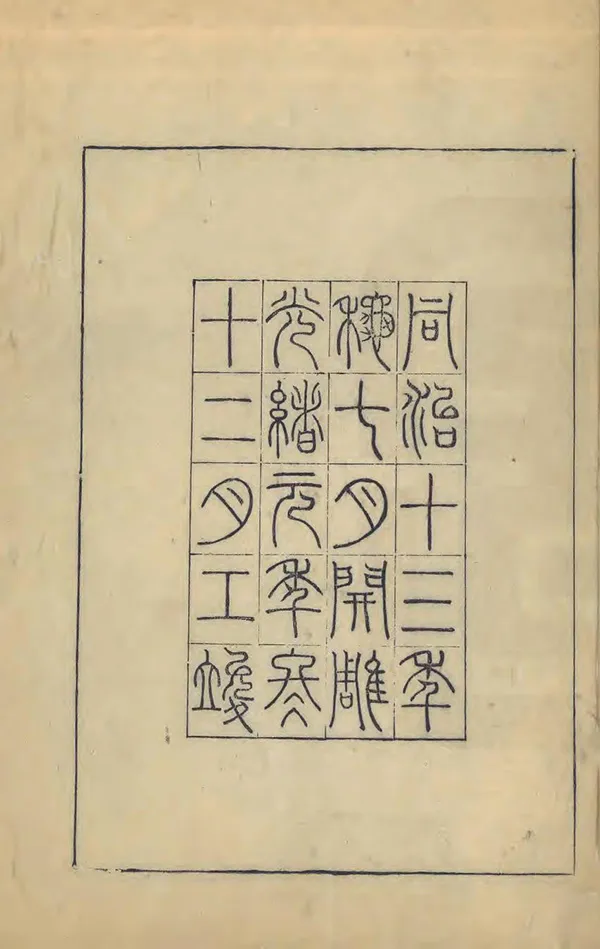 同治十三秊
龝七月開雕
光緒元秊冬
十二月工竣